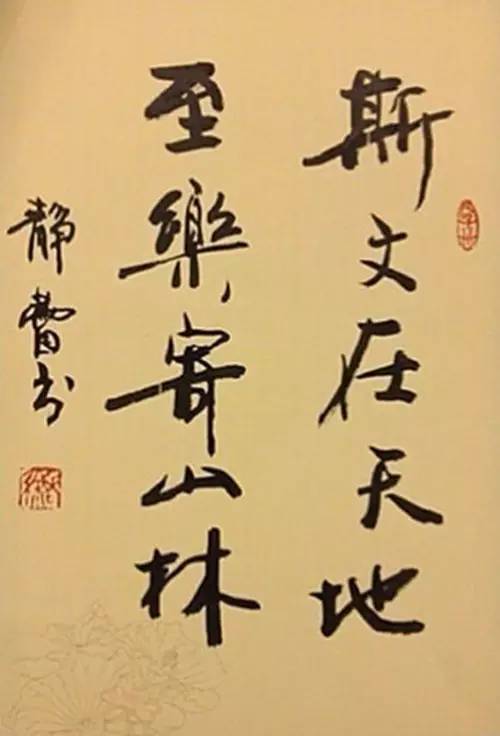 斯文在天地
至樂寄山林
靜書